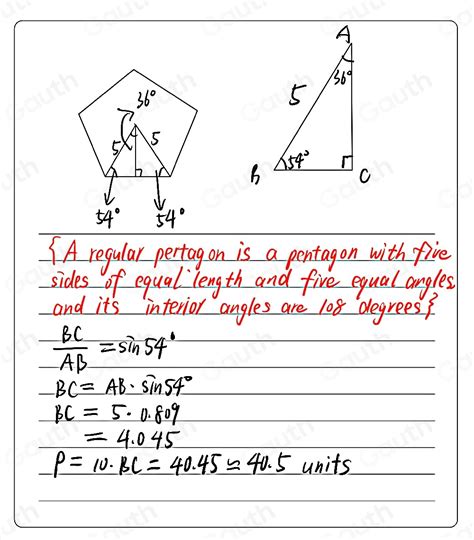 A
36°
36°
5
5
5
B
54°
C
54°
54°
{A regular pertagon is a pentagon with five
sides of equal length and five equal angles
and its interior angles are 108 degrees}
BC/AB = sin54°
BC = AB · sin54°
BC = 5 · 0.809
= 4.045
P = 10 · BC = 40.45 ≃ 40.5 units